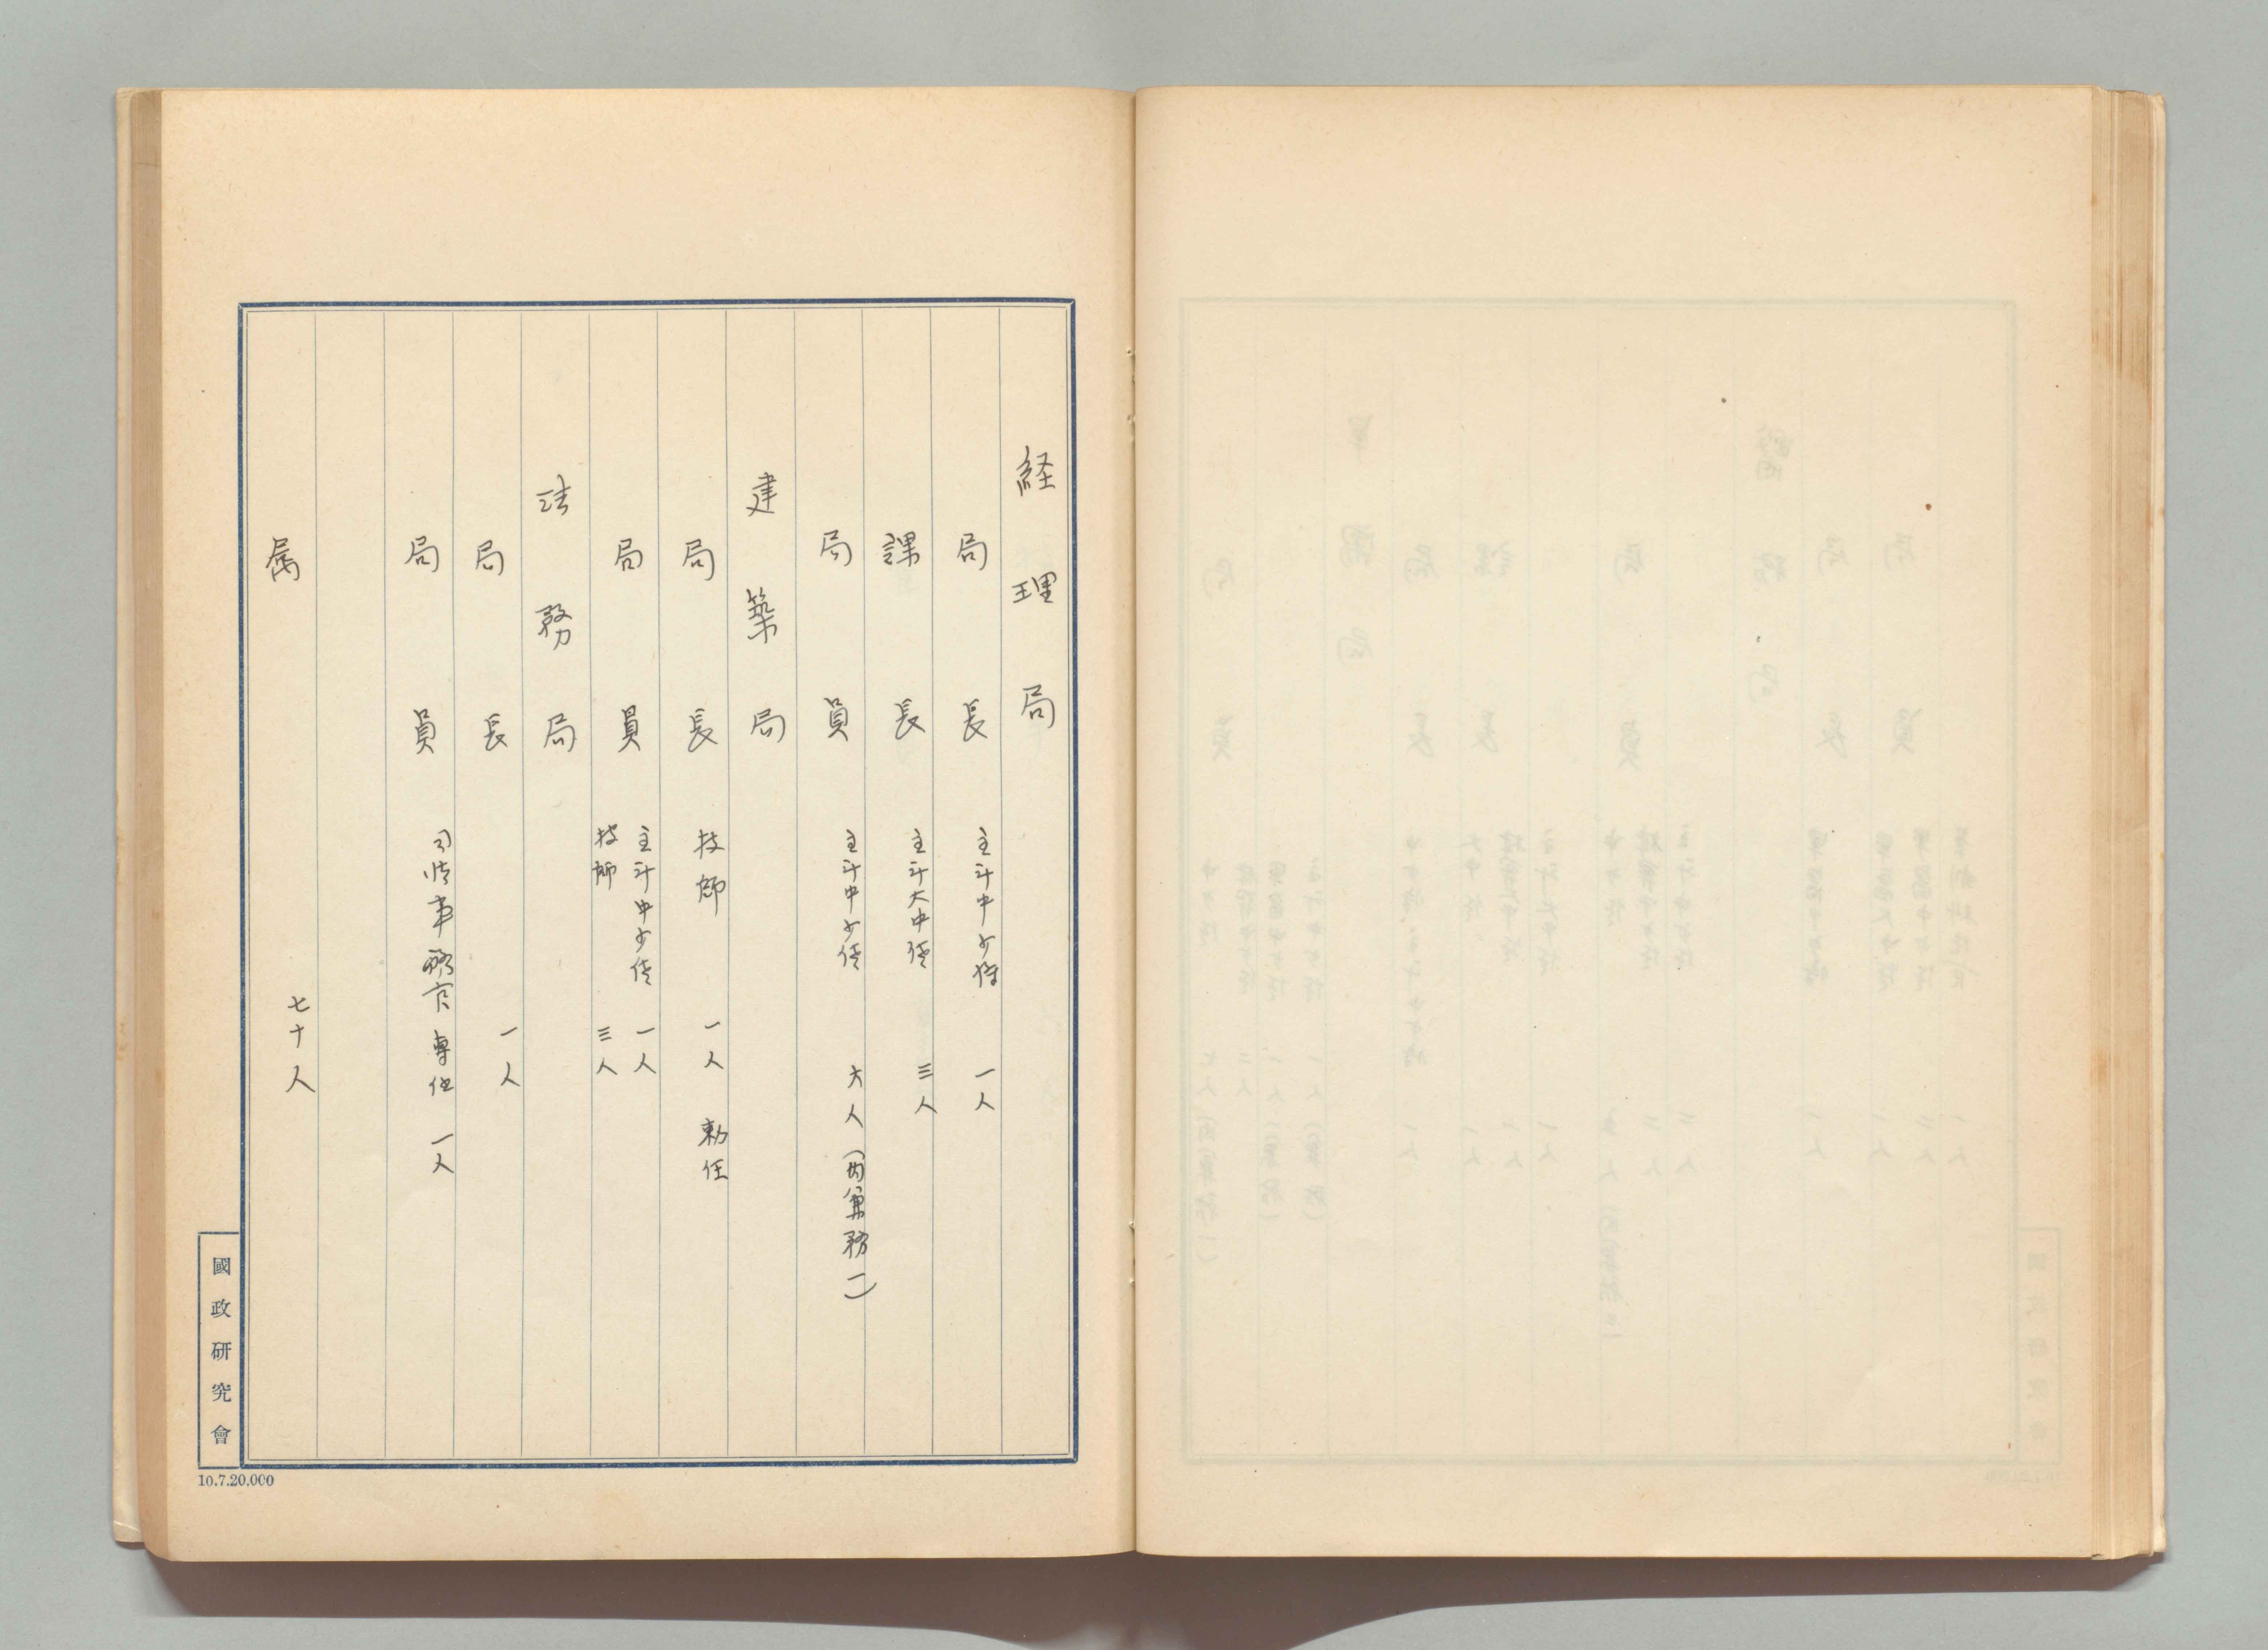 経理局
局長 主计中少将 一人
課長 主计大中佐 三人
局員 主计中少佐 六人(内兼務一)
建築局
局長 技師 一人 勅任
局員 主计中少佐 一人
技師 三人
法務局
局長 一人
局員 司法事務官 専任 一人
属 七十人
國政研究會
10.7.20.000